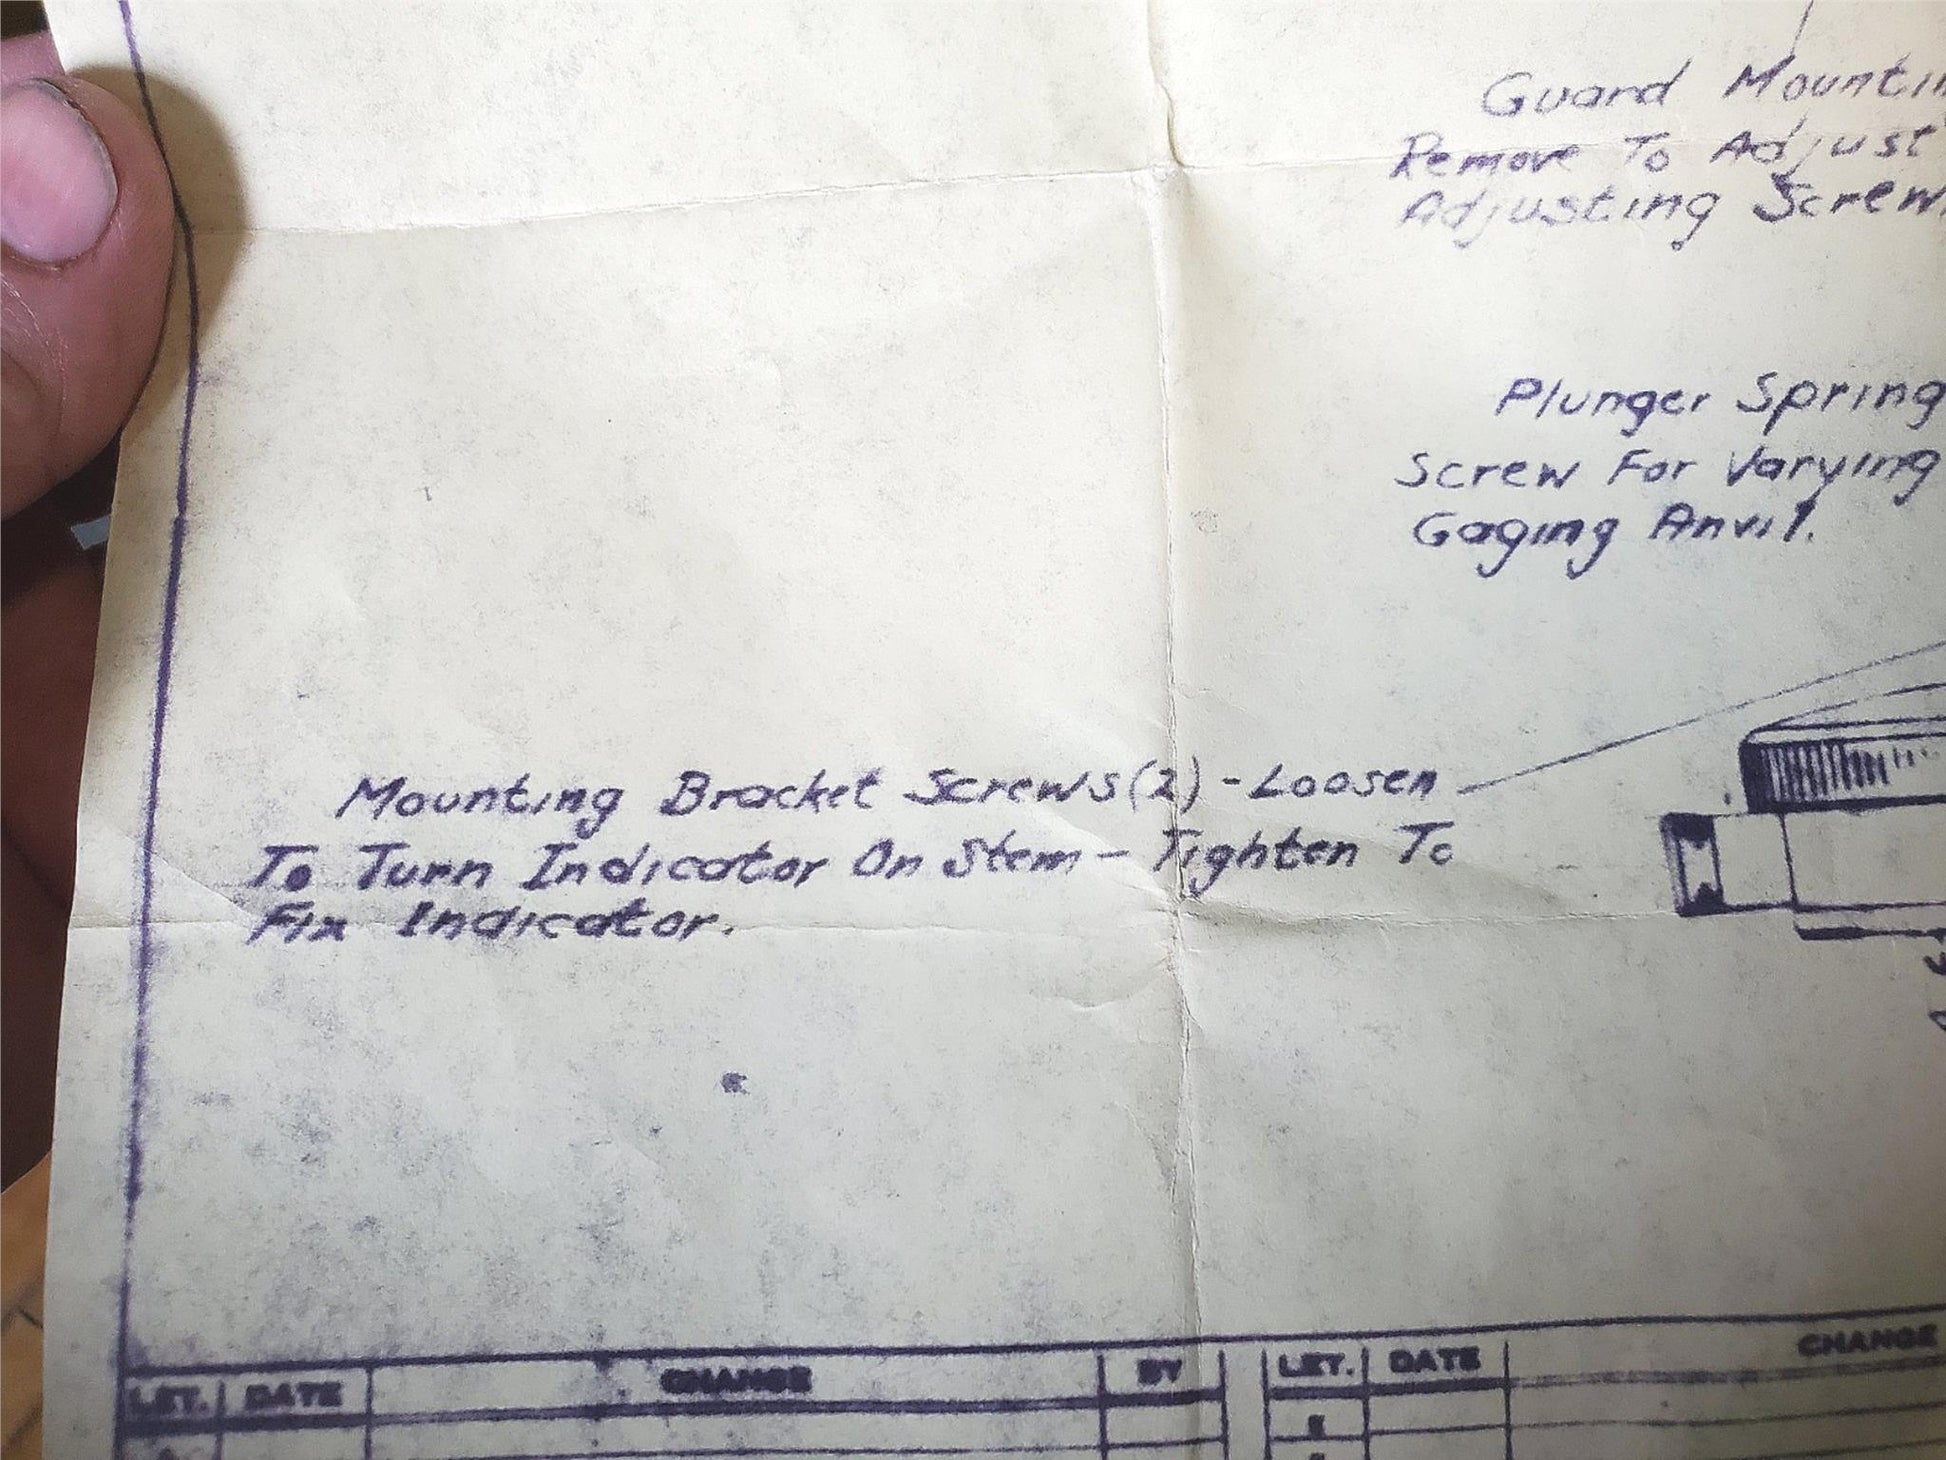 Guard Mountin
Remove To Adjust
Adjusting Screw.
Plunger Spring
Screw For Varying
Gaging Anvil.
Mounting Bracket Screws(2)-Loosen
To Turn Indicator On Stem - Tighten To
Fix Indicator.
LET. DATE CHANGE BY LET. DATE CHANGE
E